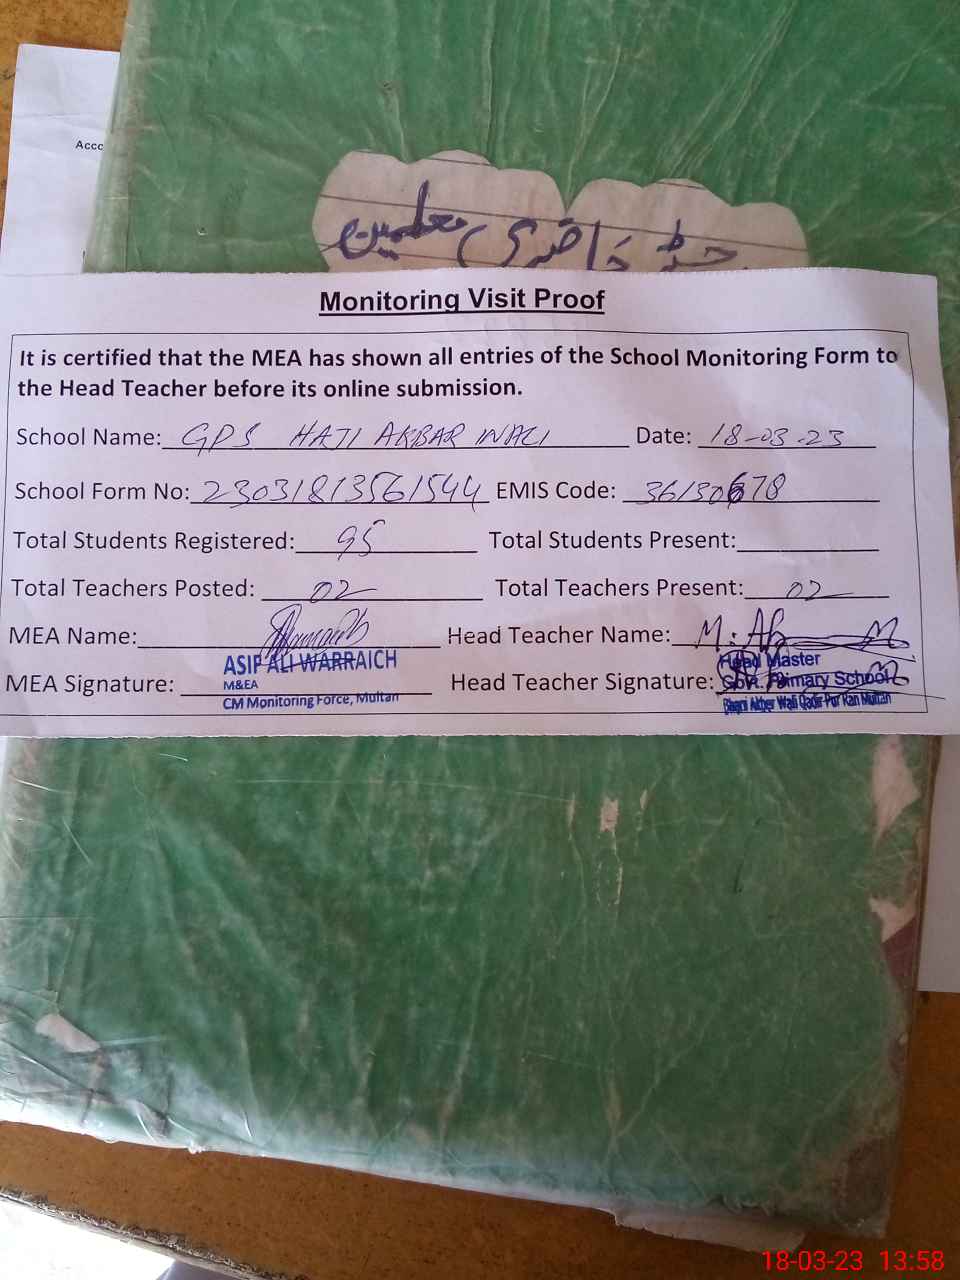 Acco
رجسٹر حاضری معلمین
Monitoring Visit Proof
It is certified that the MEA has shown all entries of the School Monitoring Form to
the Head Teacher before its online submission.
School Name: GPS HAJI AKBAR WALI Date: 18-03-23
School Form No: 23031813561544 EMIS Code: 36130678
Total Students Registered: 95 Total Students Present:
Total Teachers Posted: 02 Total Teachers Present: 02
MEA Name: Head Teacher Name:
ASIF ALI WARRAICH
M&EA
CM Monitoring Force, Multan
Head Master
Govt. Primary School
Akber Wali Qadir Pur Ran Multan
MEA Signature: Head Teacher Signature:
18-03-23 13:58